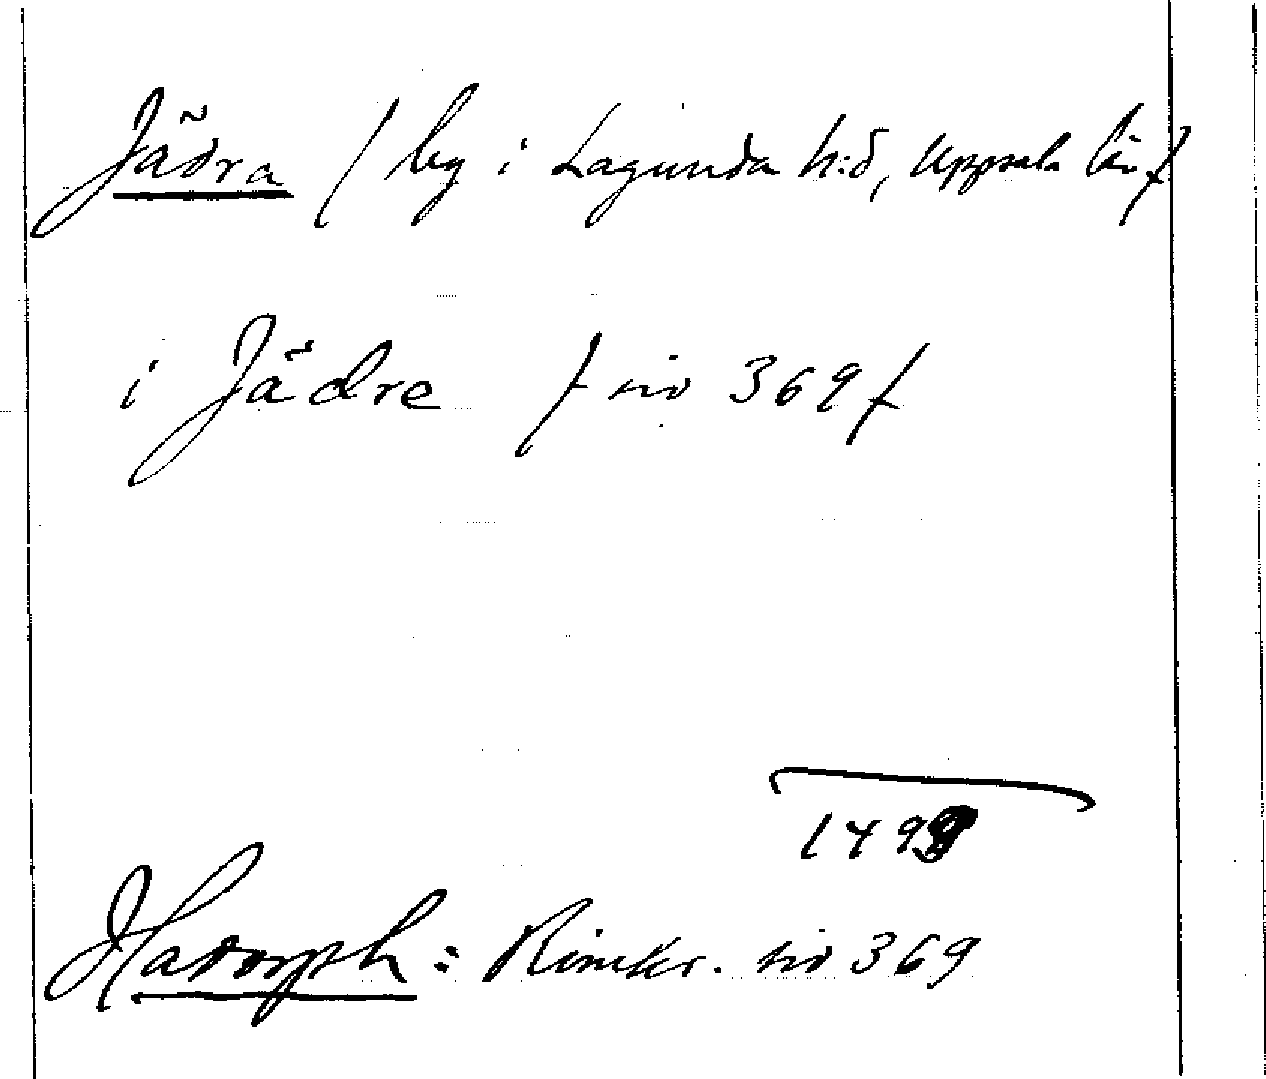 Jädra / by i Lagunda h:d, Uppsala län /
i Jädre / sid 369 /
149
Hadorph: Rimkr. sid 369